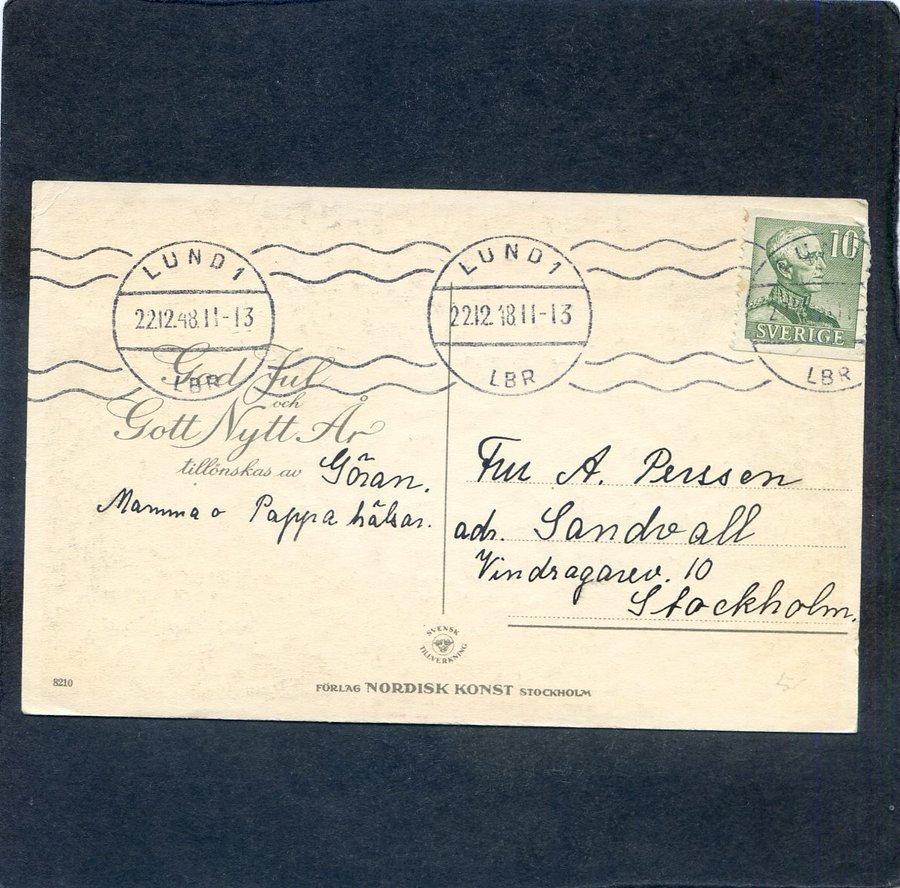 LUND 1
22.12.48.11-13
LBR
LUND 1
22.12.48.11-13
LBR
10
SVERIGE
LBR
God Jul
och
Gott Nytt År
tillönskas av Göran.
Mamma o Pappa hälsar.
Fru A. Persson
adr. Sandvall
Vindragarev. 10
Stockholm.
SVENSK
TILLVERKNING
8210
FÖRLAG NORDISK KONST STOCKHOLM
5